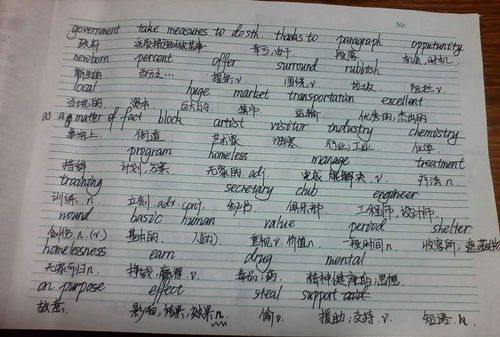 No
government take measures to do sth. thanks to paragraph opputunity
政府 采取措施做某事 幸亏,由于 段落 机会,时机
newborn percent offer surround rubbish
新生的 百分之… 提供.v 围绕.v 垃圾
local huge market transportation excellent
当地的 巨大的 集市 运输 优秀的,杰出的
as a matter of fact block artist visitor industry chemistry
事实上 街道 艺术家 游客 行业;工业 化学
program homeless manage treatment
计划,方案 无家的 adj. 完成 v. 疗法 n.
training secretary club engineer
训练. n. 立刻. adv. conj. 秘书 俱乐部 工程师,设计师
wound basic human value period shelter
创伤 n. (v.) 基本的 人(的) 重视 v. 价值 n. 一段时间 n. 收容所;
homelessness earn drug mental
无家可归 n. 挣钱,赢得. v. 毒品;药 精神(健康)的;思想
on purpose effect steal support
故意. 影响,结果,效果 n. 偷 v. 援助;支持. v. 短语. n.